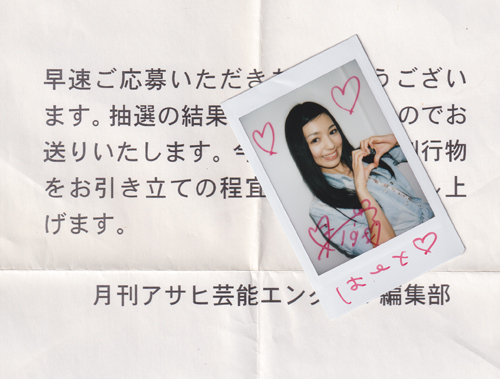 早速ご応募いただき うござい
ます。抽選の結果 のでお
送りいたします。今 行物
をお引き立ての程宜 し上
げます。
月刊アサヒ芸能エン 編集部